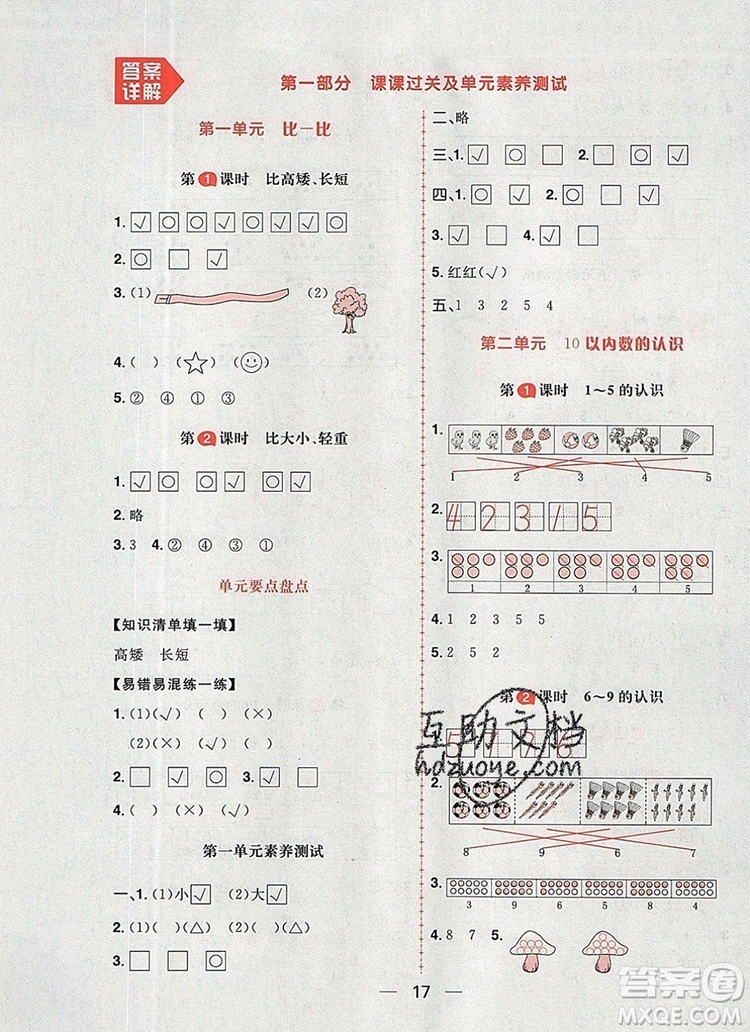 答案
详解
第一部分 课课过关及单元素养测试
第一单元 比一比
第1课时 比高矮、长短
1. √ ○ √ ○ √ √ √ ○
2. ○ □ √
3. (1) (2)
4. ( ) (☆) (☺)
5. ② ④ ① ②
第2课时 比大小、轻重
1. √ ○ ○ √ √ ○
2. 略
3. 3 4. ② ④ ① ②
单元要点盘点
【知识清单填一填】
高矮 长短
【易错易混练一练】
1. (1)(√) ( ) (×)
(2)(×) (√) ( )
2. □ □ √ ○ 3. √ □
4. ( ) (√)
第一单元素养测试
一、1. (1)小√ (2)大√
2. (1)( )(△) (2)( )(△)
3. □ □ √ ○
二、略
三、1. √ ○ □ 2. □ ○ √
四、1. √ ○ 2. ○ □ √
3. √ □ 4. √ □
5. 红红(√)
五、1 3 2 5 4
第二单元 10以内数的认识
第1课时 1～5的认识
1.
1 2 3 4 5
2. 4 2 3 1 5
3.
1 2 3 4 5
4. 1 1 2 3 5 5
5. 2 5 2 1
第2课时 6～9的认识
2.
8 9 6 7
3.
3 9 5 8 4
4. 8 7 5.
17
互助文档
hdzuoye.com
答案圈
MXQE.COM